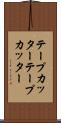 テープカッ
ターテープ
カッター